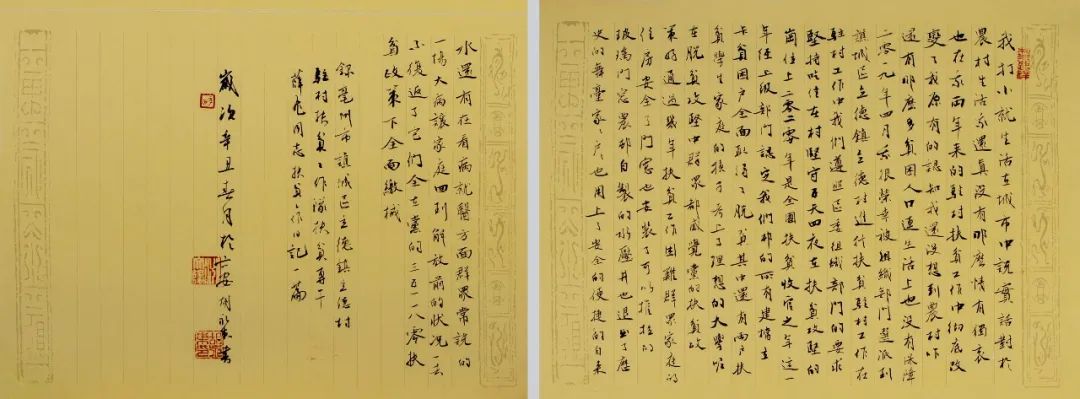 我打小就生活在城市中説實話對於
農村生活我還真没有那麽情有獨衷
也在我兩年来的駐村扶貧工作中徹底改
變了我原有的認知我還没想到農村咋
還有那麽多貧困人口連生活上也没有保障
二零一九年四月我很榮幸被組織部門選派到
譙城區立德鎮立德村進行扶貧駐村工作在
駐村工作中我們遵照區委組織部門的要求
堅持吃住在村堅守五天四夜在扶貧攻堅的
崗位上二零二零年是全國扶貧收官之年這一
年經上級部門認定我們村的所有建檔立
卡貧困户全面取得了脱貧其中還有兩户扶
貧學生家庭的孩子考上了理想的大學呢
在脱貧攻堅中群眾都感覺黨的扶貧政
策好通過幾年扶貧工作困難群眾家庭的
住房安全了門窗也安裝了可以推拉的
玻璃門窗農村自製的水壓井也退出了歷
史的舞臺家〻户〻也用上了安全的便捷的自来
水還有在看病就醫方面群眾常説的
一場大病讓家庭回到解放前的狀况一去
不復返了它們全在黨的三五一八零扶
貧政策下全面繳械
錄亳州市譙城區立德鎮立德村
駐村扶貧工作隊扶貧專干
薛飛同志扶貧工作日記一篇
歲次辛丑春月於安周書